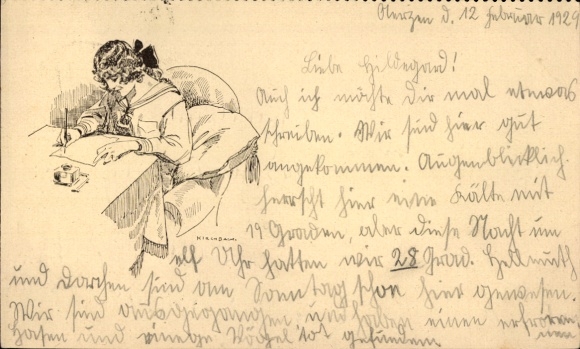 Aerzen d. 12 Februar 1929
Liebe Hildegard!
Auch ich möchte dir mal etwas
schreiben. Wir sind hier gut
angekommen. Augenblicklich
herrscht hier eine Kälte mit
19 Graden, aber diese Nacht um
elf Uhr hatten wir 28 Grad. Hellmuth
und Dorchen sind am Sonntag schon hier gewesen.
Wir sind und haben einen erfroren
Hasen und einege Vögel tot gefunden